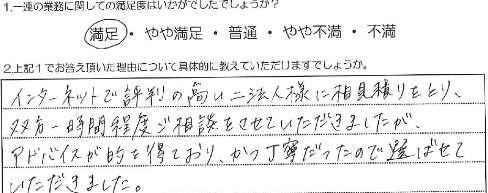 1.一連の業務に関しての満足度はいかがでしたでしょうか？
満足・やや満足・普通・やや不満・不満
2.上記1でお答え頂いた理由について具体的に教えていただけますでしょうか。
インターネットで評判の高い二法人様に相見積りをとり、
双方一時間程度ご相談をさせていただきましたが、
アドバイスが的を得ており、かつ丁寧だったので選ばせて
いただきました。